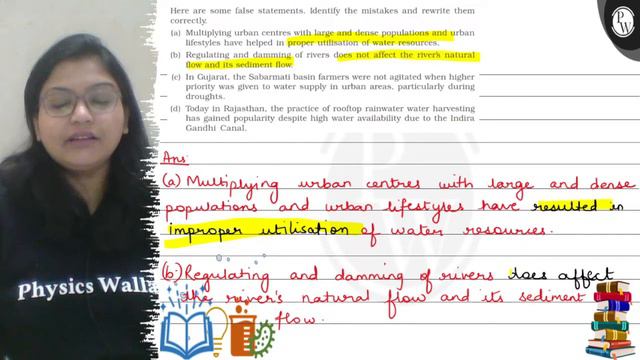 Here are some false statements. Identify the mistakes and rewrite them
correctly.
(a) Multiplying urban centres with large and dense populations and urban
lifestyles have helped in proper utilisation of water resources.
(b) Regulating and damming of rivers does not affect the river's natural
flow and its sediment flow
(c) In Gujarat, the Sabarmati basin farmers were not agitated when higher
priority was given to water supply in urban areas, particularly during
droughts.
(d) Today in Rajasthan, the practice of rooftop rainwater water harvesting
has gained popularity despite high water availability due to the Indira
Gandhi Canal.
Ans:
(a) Multiplying urban centres with large and dense
populations and urban lifestyles have resulted in
improper utilisation of water resources.
(b) Regulating and damming of rivers does affect
the river's natural flow and its sediment
flow.
Physics Walla
PW